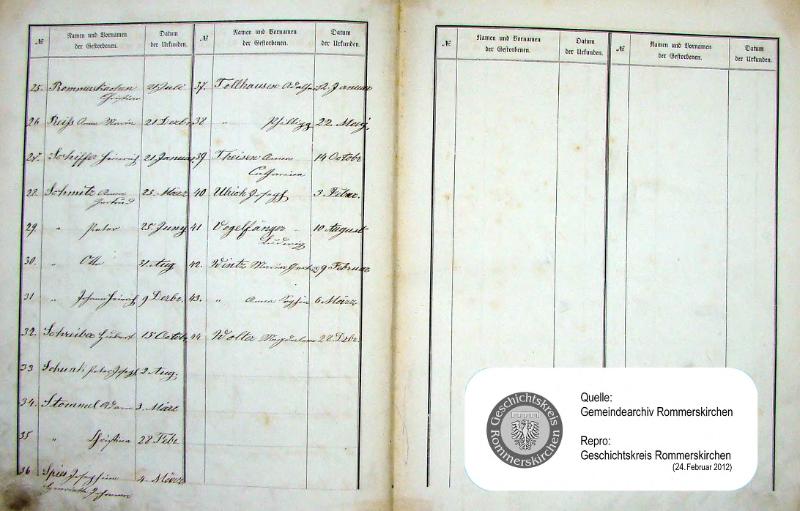 № Namen und Vornamen der Gestorbenen. Datum der Urkunden. № Namen und Vornamen der Gestorbenen. Datum der Urkunden.
25. Rommerskirchen Christian Juli
26. Reiß Anna Maria 21 Dezbr
27. Schiffer Heinrich 21 Januar
28. Schmitz Anna Gertrud 25 März
29. " Peter 25 Juny
30. " 31 Aug
31 " Johann Heinrich 9 Dezbr.
32. Schreiber Hubert 15 Octob
33 Schunk Peter Joseph 2 Aug.
34. Stommel Adam 3 März
35 " Christina 28 Febr.
36 Spies Josephine Henriette Johanna 4 März
37. Tollhausen Adolph 22. Januar
38 " Philipp 22. May
39. Theisen Anna Catharina 14 Octobr
40 Ulrich Joseph 3 Febr.
41 Vogelfänger Ludwig 10 August
42. Wintz Maria 9 Februar
43. " Anna Sophia 6 März
44 Wolter Magdalena 28 Dzbr.
№ Namen und Vornamen der Gestorbenen. Datum der Urkunden. № Namen und Vornamen der Gestorbenen. Datum der Urkunden.
Geschichtskreis Rommerskirchen
Quelle:
Gemeindearchiv Rommerskirchen
Repro:
Geschichtskreis Rommerskirchen
(24.Februar 2012)